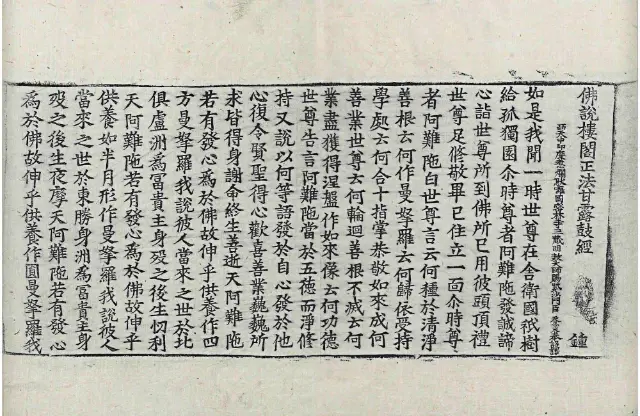 佛說樓閣正法甘露鼓經 鐘
如是我聞一時世尊在舍衛國祇樹
給孤獨園尒時尊者阿難陁發誠諦
心詣世尊所到佛所已用彼頭頂禮
世尊足修敬畢已住立一面尒時尊
者阿難陁白世尊言云何種於清淨
善根云何作曼拏羅云何歸依受持
學處云何合十指掌恭敬如來成何
善業世尊云何輪迴善根不滅云何
業盡獲得涅盤作如來像云何功德
世尊告言阿難陁當於五德而淨修
持又說以何等語發於自心發於他
心復令賢聖得心歡喜善業巍巍所
求皆得身謝命終生善逝天阿難陁
若有發心為於佛故伸乎供養作四
方曼拏羅我說彼人當來之世於北
俱盧洲為冨貴主身歿之後生忉利
天阿難陁若有發心為於佛故伸乎
供養如半月形作曼拏羅我說彼人
當來之世於東勝身洲為冨貴主身
歿之後生夜摩天阿難陁若有發心
為於佛故伸乎供養作圓曼拏羅我